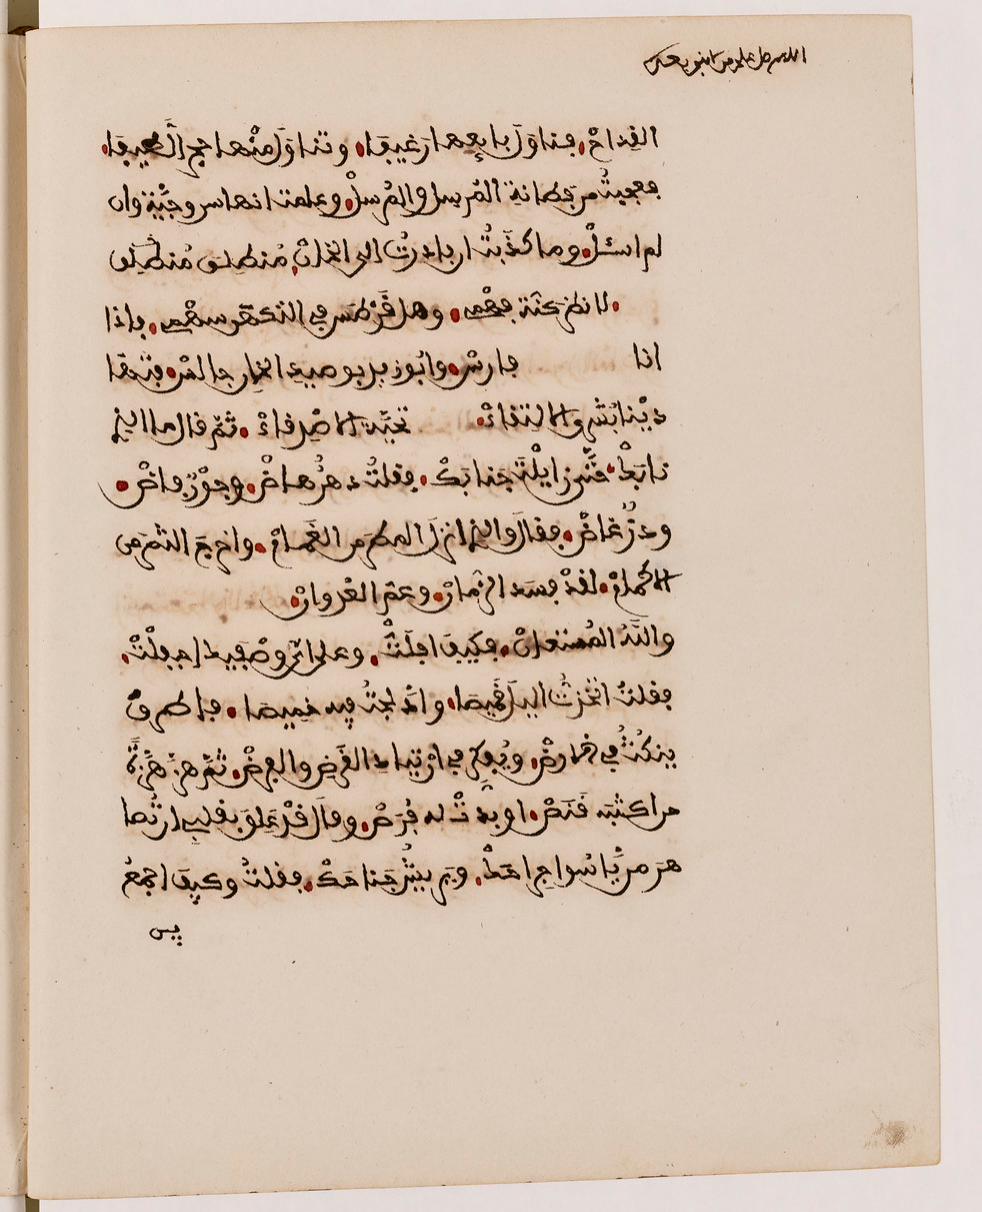 اللهم صل على من لا نبي بعده
القداح، فناول بايعها رغيفا، وتناول منها حجرا لطيفا،
فعجبت من فطانة المرسل والمرسل، وعلمت انها سروجية وان
لم اسئل، وما كذبت ان بادرت الى الخان، منطلق
لانظر كنه فهمي، وهل قرطس في التكهن سهمي، فاذا
انا فارس، وابو زيد بوصيد الخان جالس، فتها
دينا بشرى الالتقاء، تحية الاصدقاء، ثم قال ما الذي
نابك، حتى زايلت جنابك، فقلت دهر هاض، وجور فاض،
فقال والذي انزل المطر من الغمام، واخرج الثمر من
الاكمام، لقد فسد الزمان، وعم العدوان،
والله المستعان، فكيف افلت، وعلى اي وصفيك اجفلت،
فقلت اتخذت الليل قميصا، وادلجت فيه خميصا، فاطرق
ينكت في الارض، ويفكر في ارتياد القرض والفرض، ثم هز هزة
من اكثبه قنص، او بدت له فرص، وقال قد علق بقلبي ان تصا
هر من ياسوا جراحك، ويريش جناحك، فقلت وكيف اجمع
بين